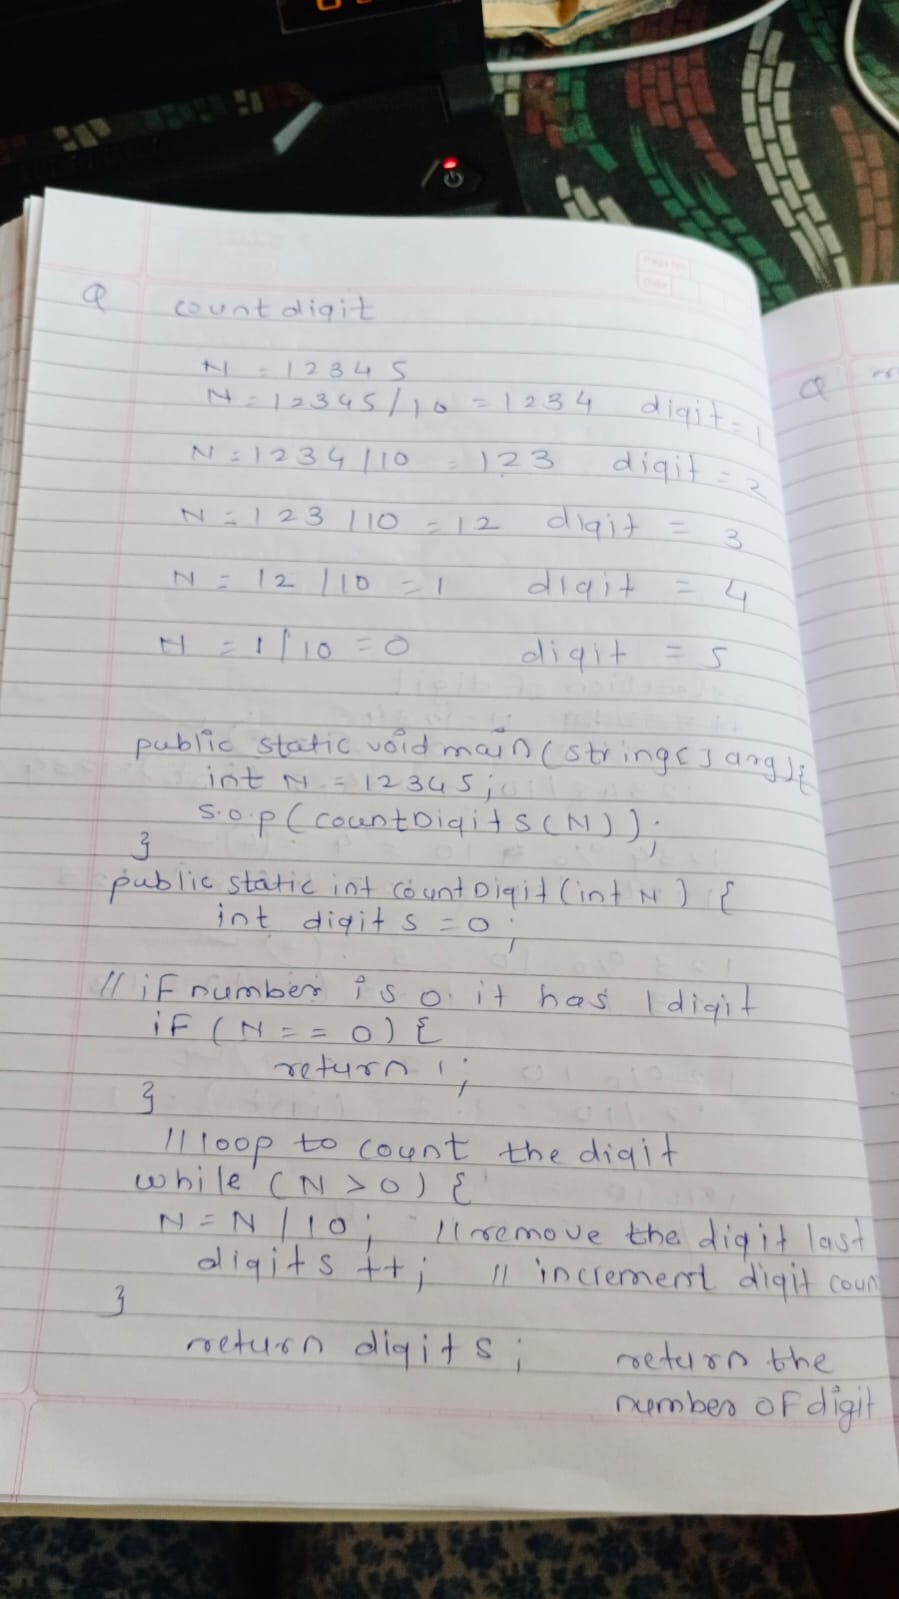 Page No.
Date
Q count digit
N = 12345
N = 12345/10 = 1234 digit = 1
N = 1234/10 = 123 digit = 2
N = 123/10 = 12 digit = 3
N = 12/10 = 1 digit = 4
N = 1/10 = 0 digit = 5
public static void main(string[] arg){
int N = 12345;
S.O.P(countDigits(N));
}
public static int countDigit(int N) {
int digits = 0;
// if number is 0 it has 1 digit
if (N == 0) {
return 1;
}
// loop to count the digit
while (N > 0) {
N = N/10; // remove the digit last
digits ++; // increment digit coun
}
return digits; return the
number of digit
Q